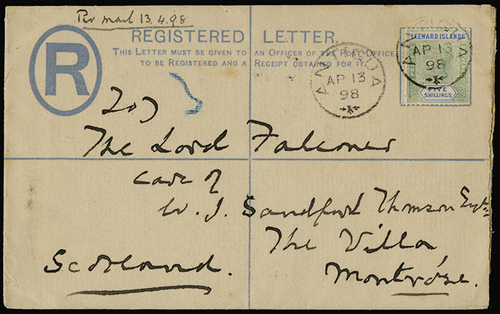 Per mail 13.4.98
REGISTERED LETTER.
THIS LETTER MUST BE GIVEN TO AN OFFICER OF THE POST OFFICE
TO BE REGISTERED AND A RECEIPT OBTAINED FOR IT.
R
LEEWARD ISLANDS
FIVE
SHILLINGS
ANTIGUA
AP 13
98
A
ANTIGUA
AP 13
98
A
207
The Lord Falconer
Care of
W. J. Sandford Thomson Esqre
The Villa
Montrose.
Scotland.